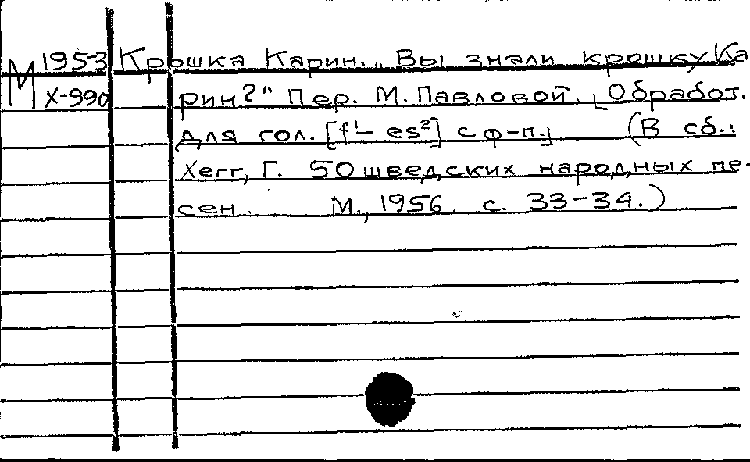 М 1953 Крошка Карин. „Вы знали крошку Ка-
Х-990 рин?" Пер. М. Павловой. [Обработ.
для гол. [f¹– es²] с ф-п.] (В сб.:
Хегг, Г. 50 шведских народных пе-
сен. М., 1956. с. 33-34.)